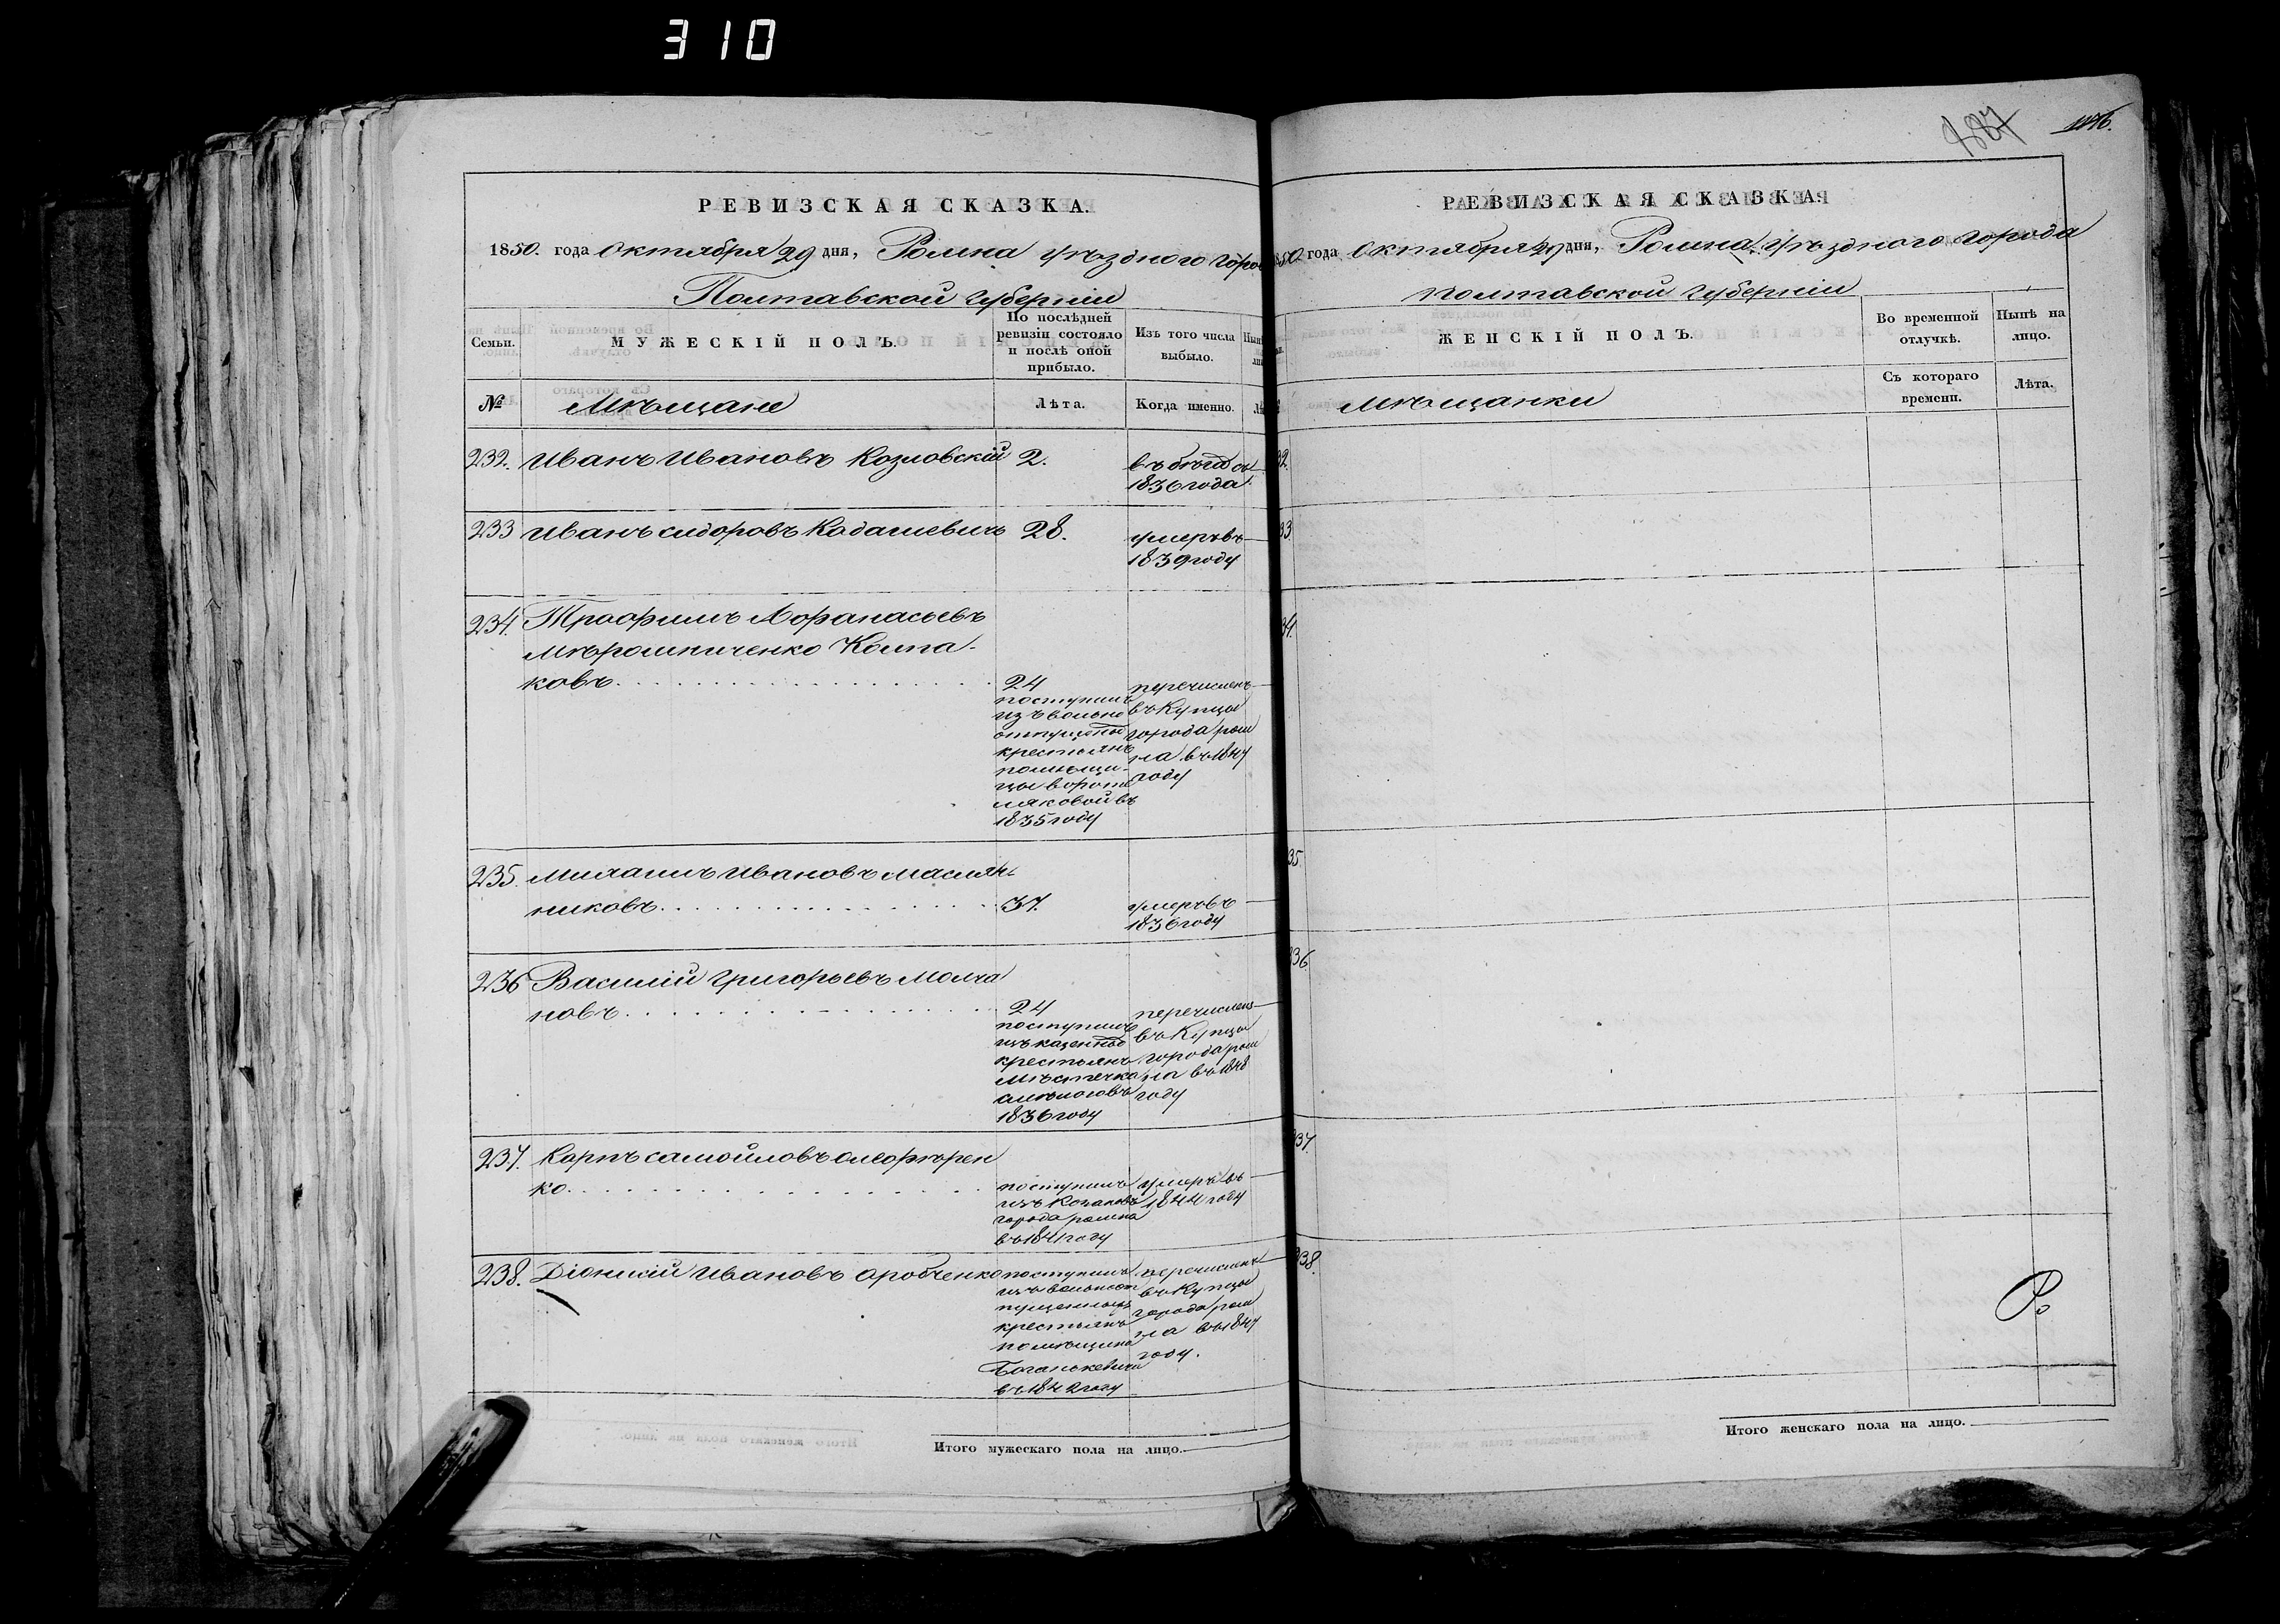 310
РЕВИЗСКАЯ СКАЗКА.
1850. года Октября 29 дня, Ромна уѣзднаго горо
Полтавской губерніи
Семьи.
МУЖЕСКІЙ ПОЛЪ.
По послѣдней ревизіи состояло и послѣ оной прибыло.
Изъ того числа выбыло.
№
Мѣщане
Лѣта.
Когда именно.
232. Иванъ Ивановъ Козловскій 2.
въ бѣгахъ
1836 года
233 Иванъ Сидоровъ Кадашевичъ 28.
умеръ въ
1839 году
234. Трофимъ Афанасьевъ
Мѣрошниченко Колпа-
ковъ
24
поступилъ
изъ вольно
отпущеныхъ
крестьянъ
помѣщи-
цы
въ
1835 году
перечисленъ
въ Купцы
города ром
на въ 1847
году
235. Ивановъ Маслян-
никовъ
37.
умеръ въ
1836 году
236 Василій Григорьевъ Молча
новъ
24
поступилъ
изъ казенныхъ
крестьянъ
мѣстечка
смѣлого въ
1836 году
перечисленъ
въ Купцы
города ром
на въ 1848
году
237. Карпъ Самойловъ
ко
поступилъ
изъ Козаковъ
города ромна
въ 1841 году
умеръ въ
1844 году
238. Діонисій Ивановъ
поступилъ
изъ вольноот
пущенныхъ
крестьянъ
помѣщика
въ 1842 году
перечисленъ
въ Купцы
города ром
на въ 1847
году.
Итого мужескаго пола на лицо.
487
1176.
РЕВИЗСКАЯ СКАЗКА.
850 года Октября 29 дня, Ромна уѣзднаго города
Полтавской губерніи
ЖЕНСКІЙ ПОЛЪ.
Во временной отлучкѣ.
Нынѣ на лицо.
Мѣщанки
Съ котораго времени.
Лѣта.
32.
33.
34.
35.
36.
237.
238.
Итого женскаго пола на лицо.